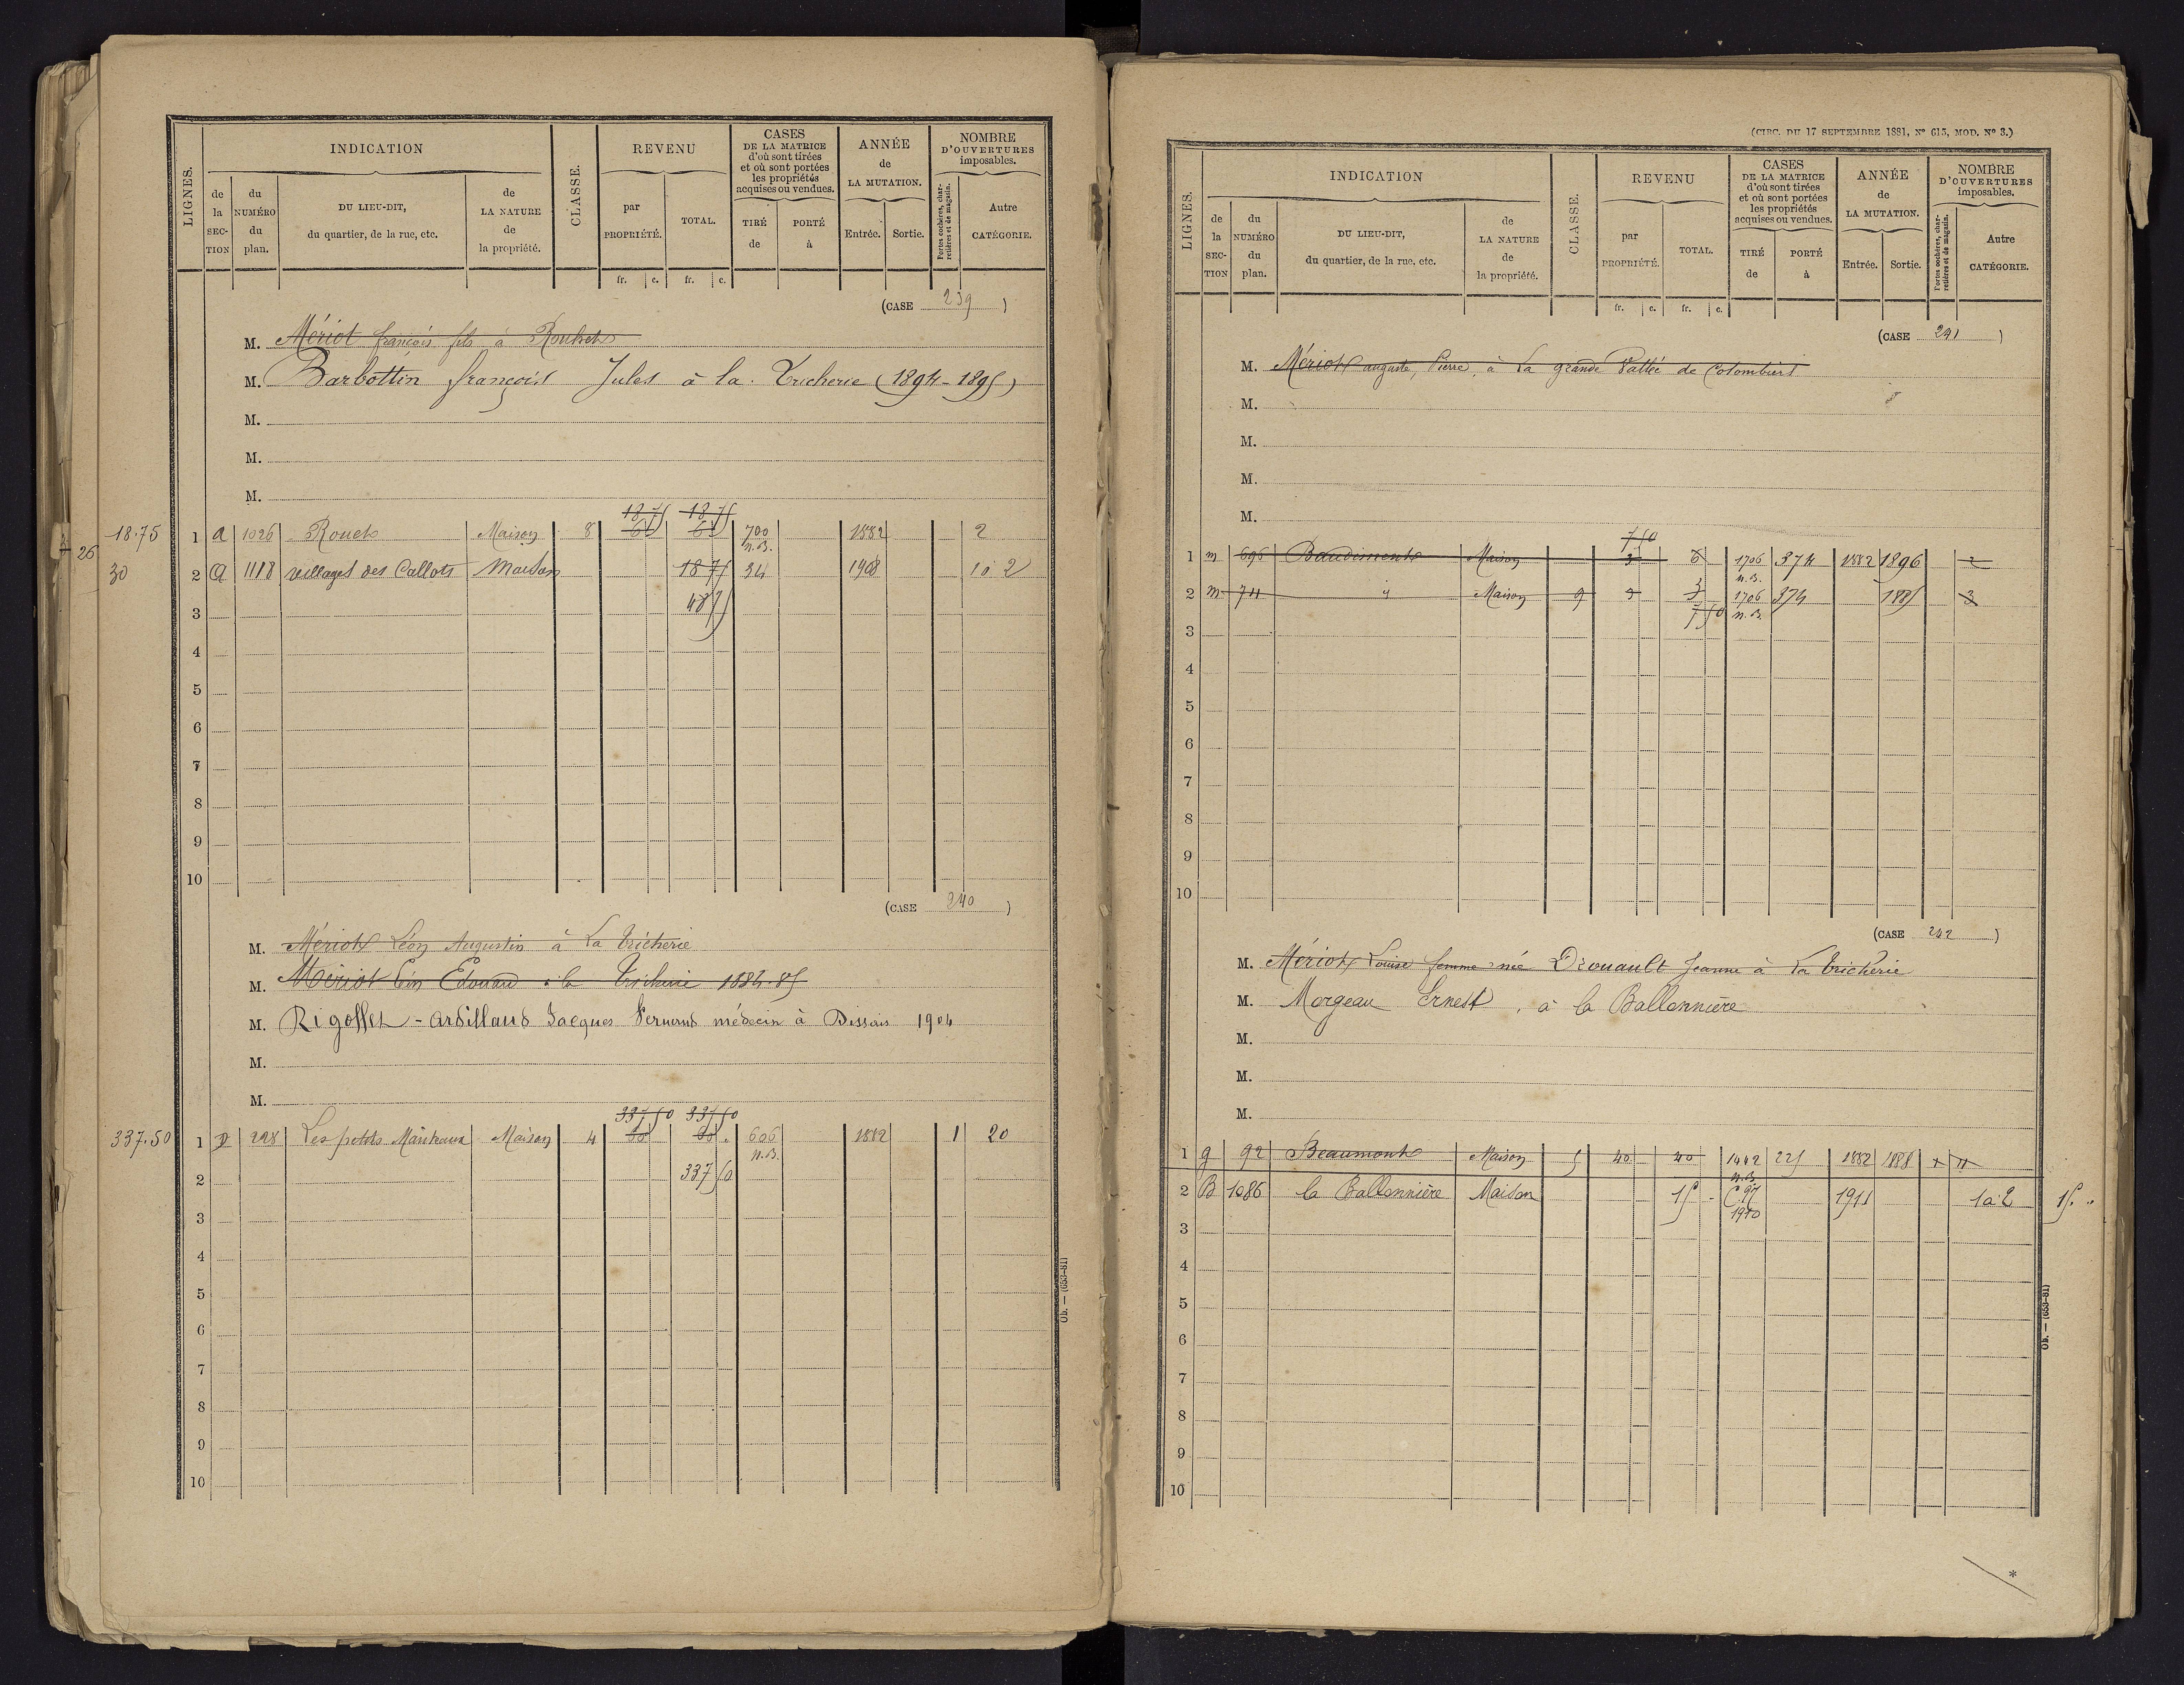 LIGNES.
INDICATION
de la SECTION
du NUMÉRO du plan.
DU LIEU-DIT, du quartier, de la rue, etc.
de LA NATURE de la propriété.
CLASSE.
REVENU
par PROPRIÉTÉ.
TOTAL.
fr. c. fr. c.
CASES DE LA MATRICE d'où sont tirées et où sont portées les propriétés acquises ou vendues.
TIRÉ de
PORTÉ à
ANNÉE de LA MUTATION.
Entrée. Sortie.
NOMBRE D'OUVERTURES imposables.
Portes cochères, charretières et de magasin.
Autre CATÉGORIE.
(CASE 239)
M. Mériot françois fils à
M. Barbottin françois Jules à la Tricherie (1894-1895)
M.
M.
M.
18 75 18 75
18.75 1 a 1026 Rouets Maison 8 700 1882 2
n.B.
26
30 2 a 1118 villages des Callots Maison 18 75 34 1908 1 à 2
3 48 75
4
5
6
7
8
9
10
(CASE 240)
M. Mériot Léon Augustin à La Tricherie
M. Mériot Léon Edouard à la Tricherie 1884-85
M. Rigollet - Ardillaud Jacques Fernand médecin à Dissais 1904
M.
M.
337 50 337 50
337.50 1 D 228 Les petits Maison 4 60 606 1882 1 20
n.B.
2 337 50
3
4
5
6
7
8
9
10
Ob. — (653-81)
(CIRC. DU 17 SEPTEMBRE 1881, N° 615, MOD. N° 3.)
LIGNES.
INDICATION
de la SECTION
du NUMÉRO du plan.
DU LIEU-DIT, du quartier, de la rue, etc.
de LA NATURE de la propriété.
CLASSE.
REVENU
par PROPRIÉTÉ.
TOTAL.
fr. c. fr. c.
CASES DE LA MATRICE d'où sont tirées et où sont portées les propriétés acquises ou vendues.
TIRÉ de
PORTÉ à
ANNÉE de LA MUTATION.
Entrée. Sortie.
NOMBRE D'OUVERTURES imposables.
Portes cochères, charretières et de magasin.
Autre CATÉGORIE.
(CASE 241)
M. Mériot auguste, Pierre, à La grande Vallée de Colombiers
M.
M.
M.
M.
7 50
1 m 696 Baudiments Maison 3 1706 374 1882 1896 2
n.B.
2 m 711 Maison 9 3 3 1706 374 1885 3
7 50 n.B.
3
4
5
6
7
8
9
10
(CASE 242)
M. Mériot Louise femme née Drouault Jeanne à La Tricherie
M. Morgeau Ernest, à la Ballonnière
M.
M.
M.
1 g 92 Beaumont Maison 5 40 40 1442 225 1882 1888 1 11
n.B.
2 B 1086 la Ballonnière Maison 15 C.97 1911 1 à 2 15. "
1910
3
4
5
6
7
8
9
10
Ob. — (653-81)
*